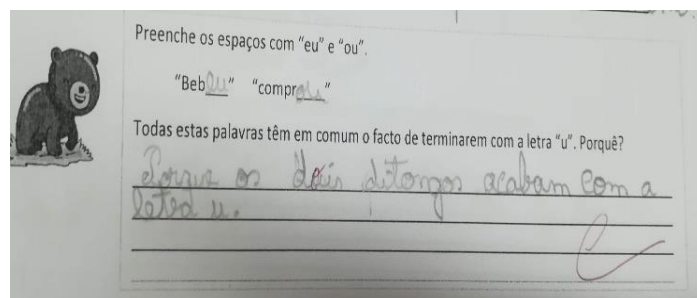 Preenche os espaços com “eu” e “ou”.
“Bebeu” “comprou”
Todas estas palavras têm em comum o facto de terminarem com a letra “u”. Porquê?
Porque os dois ditongos acabam com a
letra u.